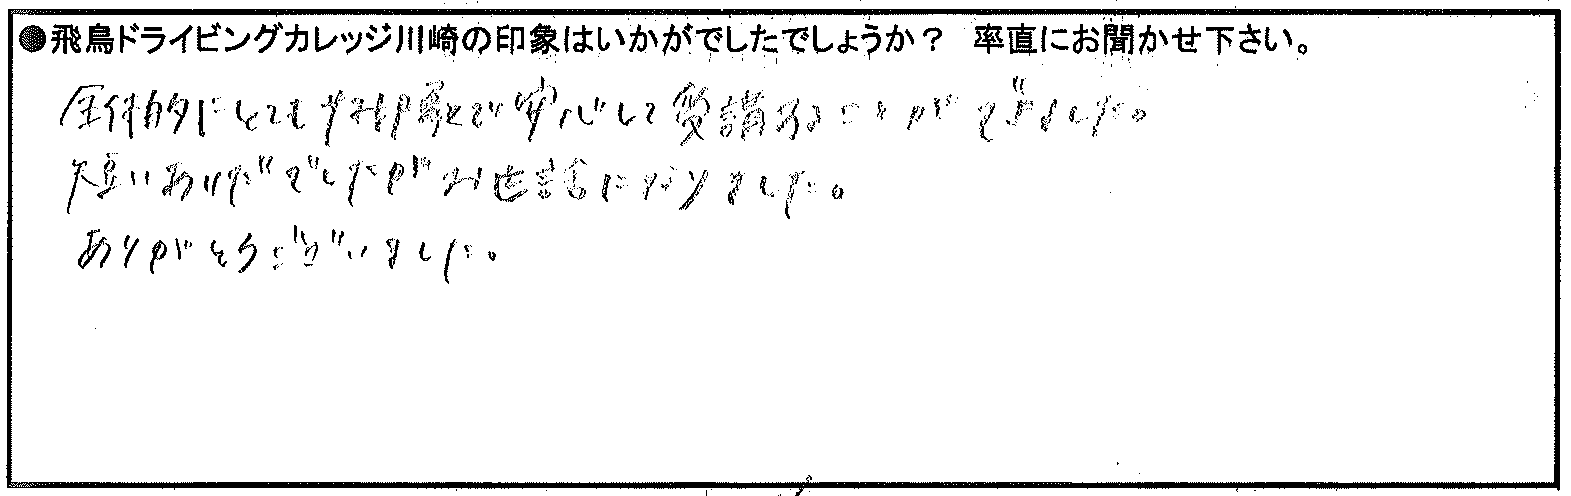 ●飛鳥ドライビングカレッジ川崎の印象はいかがでしたでしょうか? 率直にお聞かせ下さい。
全体的にとても好印象で安心して受講することができました。
短いあいだでしたがお世話になりました。
ありがとうございました。